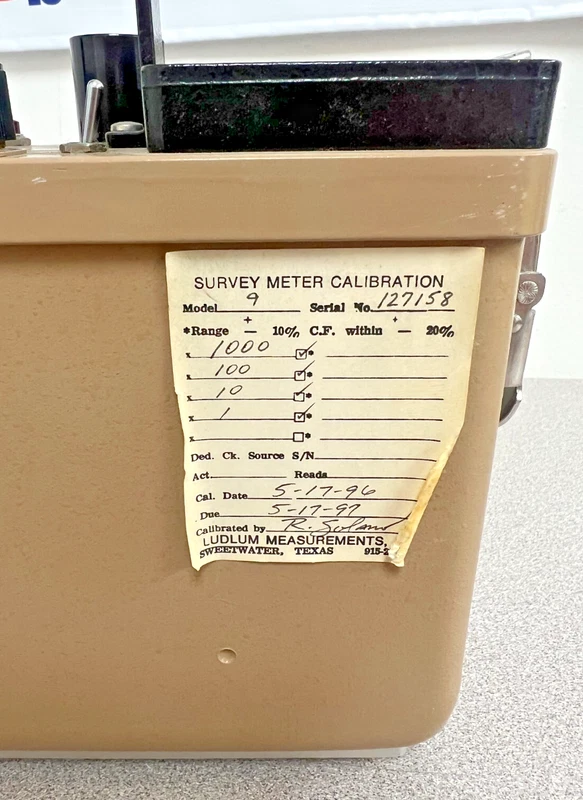 SURVEY METER CALIBRATION
Model 9 Serial No. 127158
*Range +− 10% C.F. within +− 20%
x 1000 ☑*
x 100 ☑*
x 10 ☑*
x 1 ☑*
x ☐*
Ded. Ck. Source S/N
Act. Reads
Cal. Date 5-17-96
Due 5-17-97
Calibrated by R.
LUDLUM MEASUREMENTS,
SWEETWATER, TEXAS 915-2